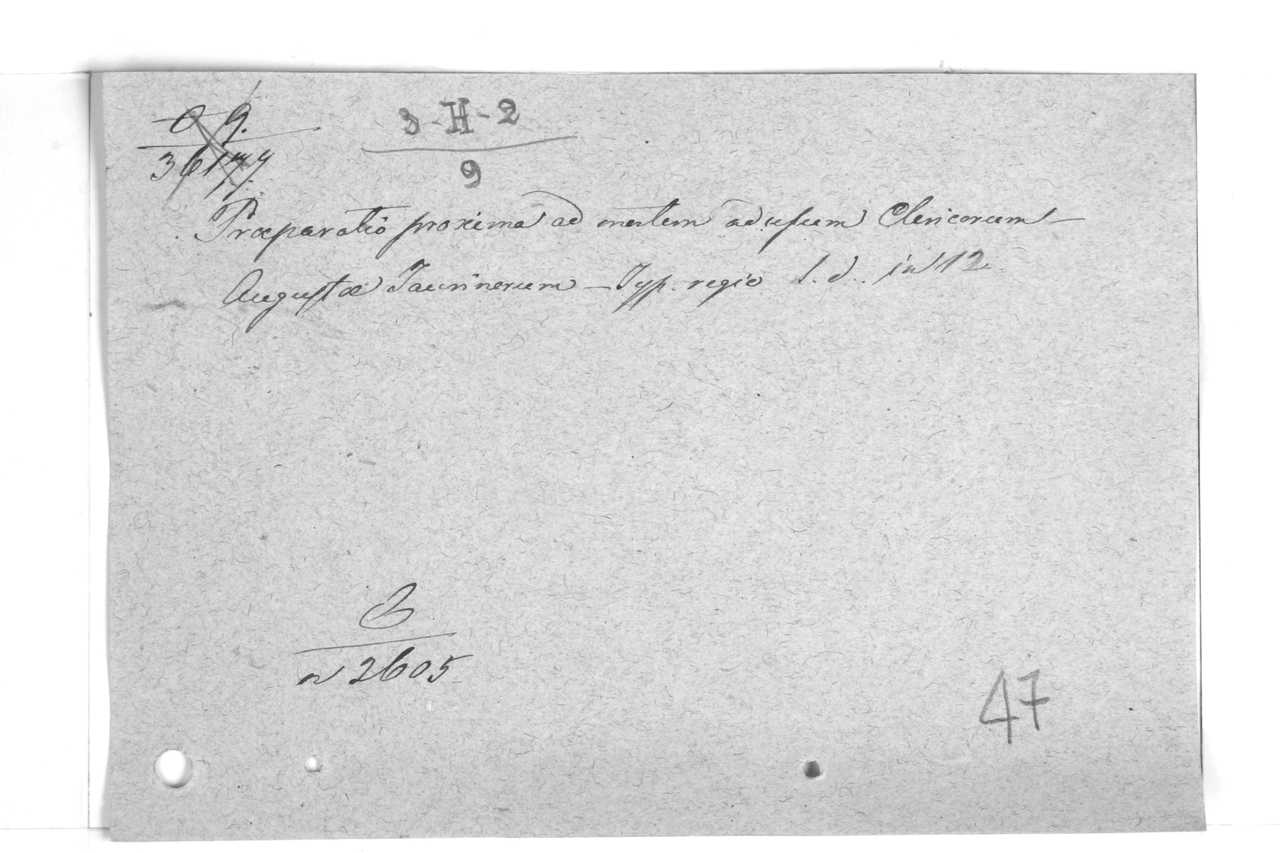 3-H-2
9
Præparatio proxima ad mortem ad usum Clericorum—
Augustæ Taurinorum — Typ. regio s. d. in 12
n 2605
47